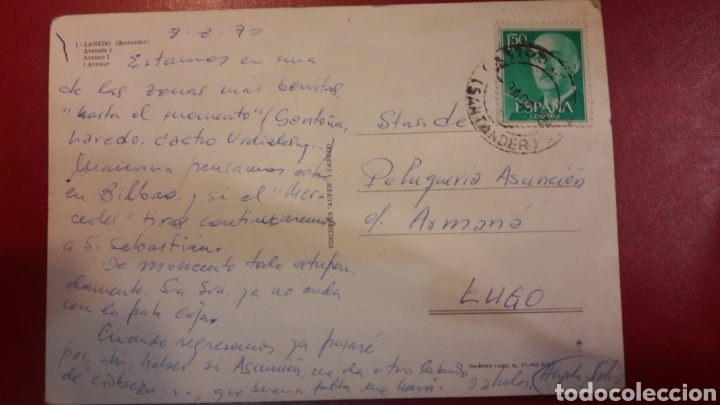 1 - LAREDO (Santander)
Avenida I
Avenue I
I Avenue
Estamos en una
de las zonas más bonitas
"hasta el momento" (Santoña,
Laredo, Castro Urdiales y...
Mañana pensamos estar
en Bilbao, y si el "Mer-
cedes" tira continuaremos
a S. Sebastián.
De momento todo estupen-
damente. Sra ya no anda
con la pata coja.
Cuando regresemos ya pasaré
por ahí, haber si Asunción, me da otro lavado
de cabeza..., que buena falta me hará. Saludos
EDICIONES "AUFER" - LAREDO
1'50
CORREOS
ESPAÑA
(SANTANDER)
Stas. de
Peluquería Asunción
d. Armañá
LUGO
Depósito Legal B. 17.
todocoleccion